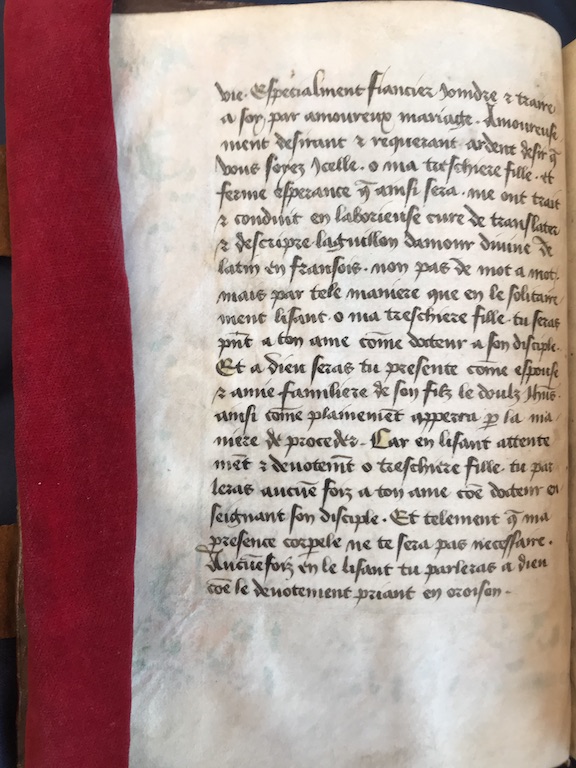 vie. Especialment fiancier Joindre ⁊ traire
a soy par amoureux mariage. Amoureuse
ment desirant ⁊ requerant ardent desir q̄
vous serez Jcelle. o ma treschiere fille. et
ferme esperance q̄ ainsi sera. me ont trait
⁊ conduit en laborieuse cure de translater
⁊ descripre laguillon damour diuine de
latin en fransois. non pas de mot a mot.
mais par tele maniere que en le solitaire
ment lisant. o ma treschiere fille. tu seras
pn̄t a ton ame com̄e docteur a son disciple.
Et a dieu seras tu presente com̄e espouse
⁊ amie familiere de son filz le doulz Jhūs.
ainsi com̄e plainemēt apperra ꝑ la ma
niere de proceder. Car en lisant attente
mēt ⁊ deuotemt̄ o treschiere fille. tu par
leras aucūe foiz a ton ame cōe docteur en
seignant son disciple. Et telement q̄ ma
presence corꝑele ne te sera pas necessaire.
Aucūefoiz en le lisant tu parleras a dieu
cōe le deuotement priant en oroison.